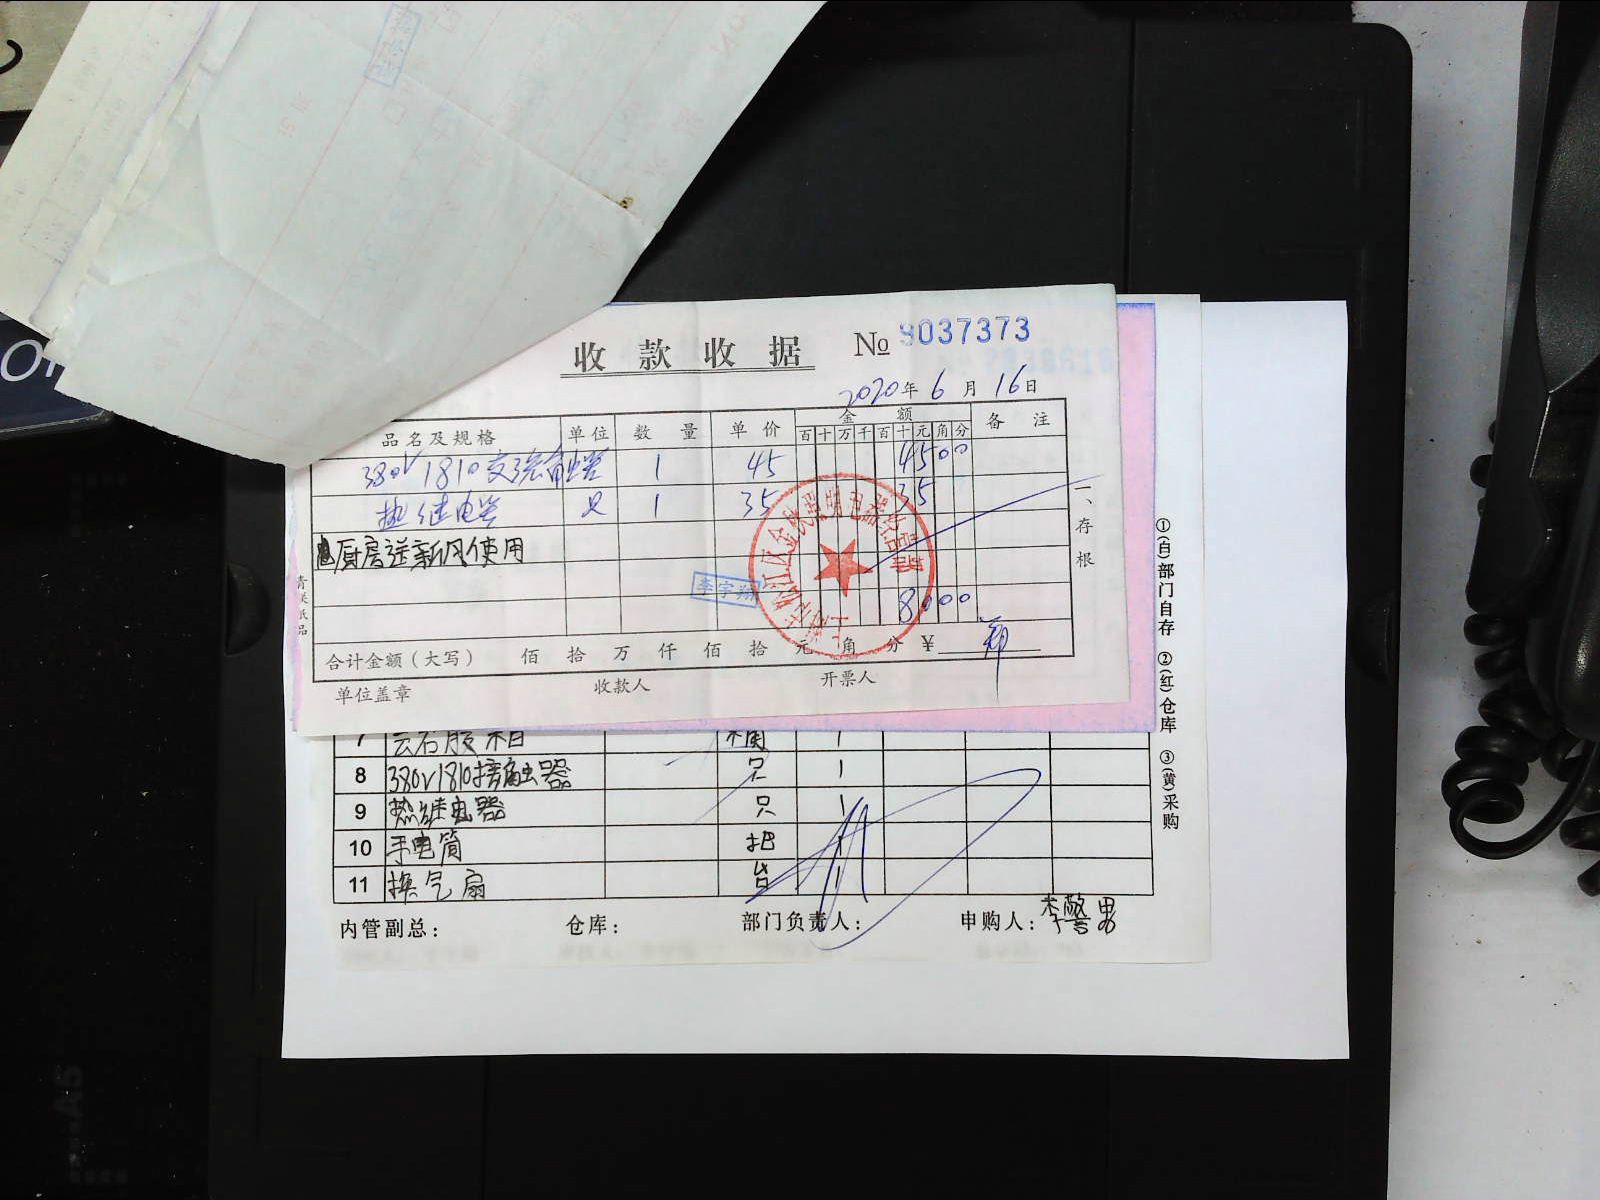 收款收据 № 9037373
2020年6月16日
品名及规格 单位 数量 单价 金额 备注
百十万千百十元角分
380V 1810交流接触器 1 45 4500
热继电器 只 1 35 35
厨房送新风使用
李宇翔
8000
合计金额（大写） 佰 拾 万 仟 佰 拾 元 角 分 ￥
单位盖章 收款人 开票人
一、存根
7 云石胶 桶 1
8 380V1810接触器 只 1
9 热继电器 只 1
10 手电筒 把 1
11 换气扇 台 1
内管副总： 仓库： 部门负责人： 申购人：李警男
①(白)部门自存 ②(红)仓库 ③(黄)采购